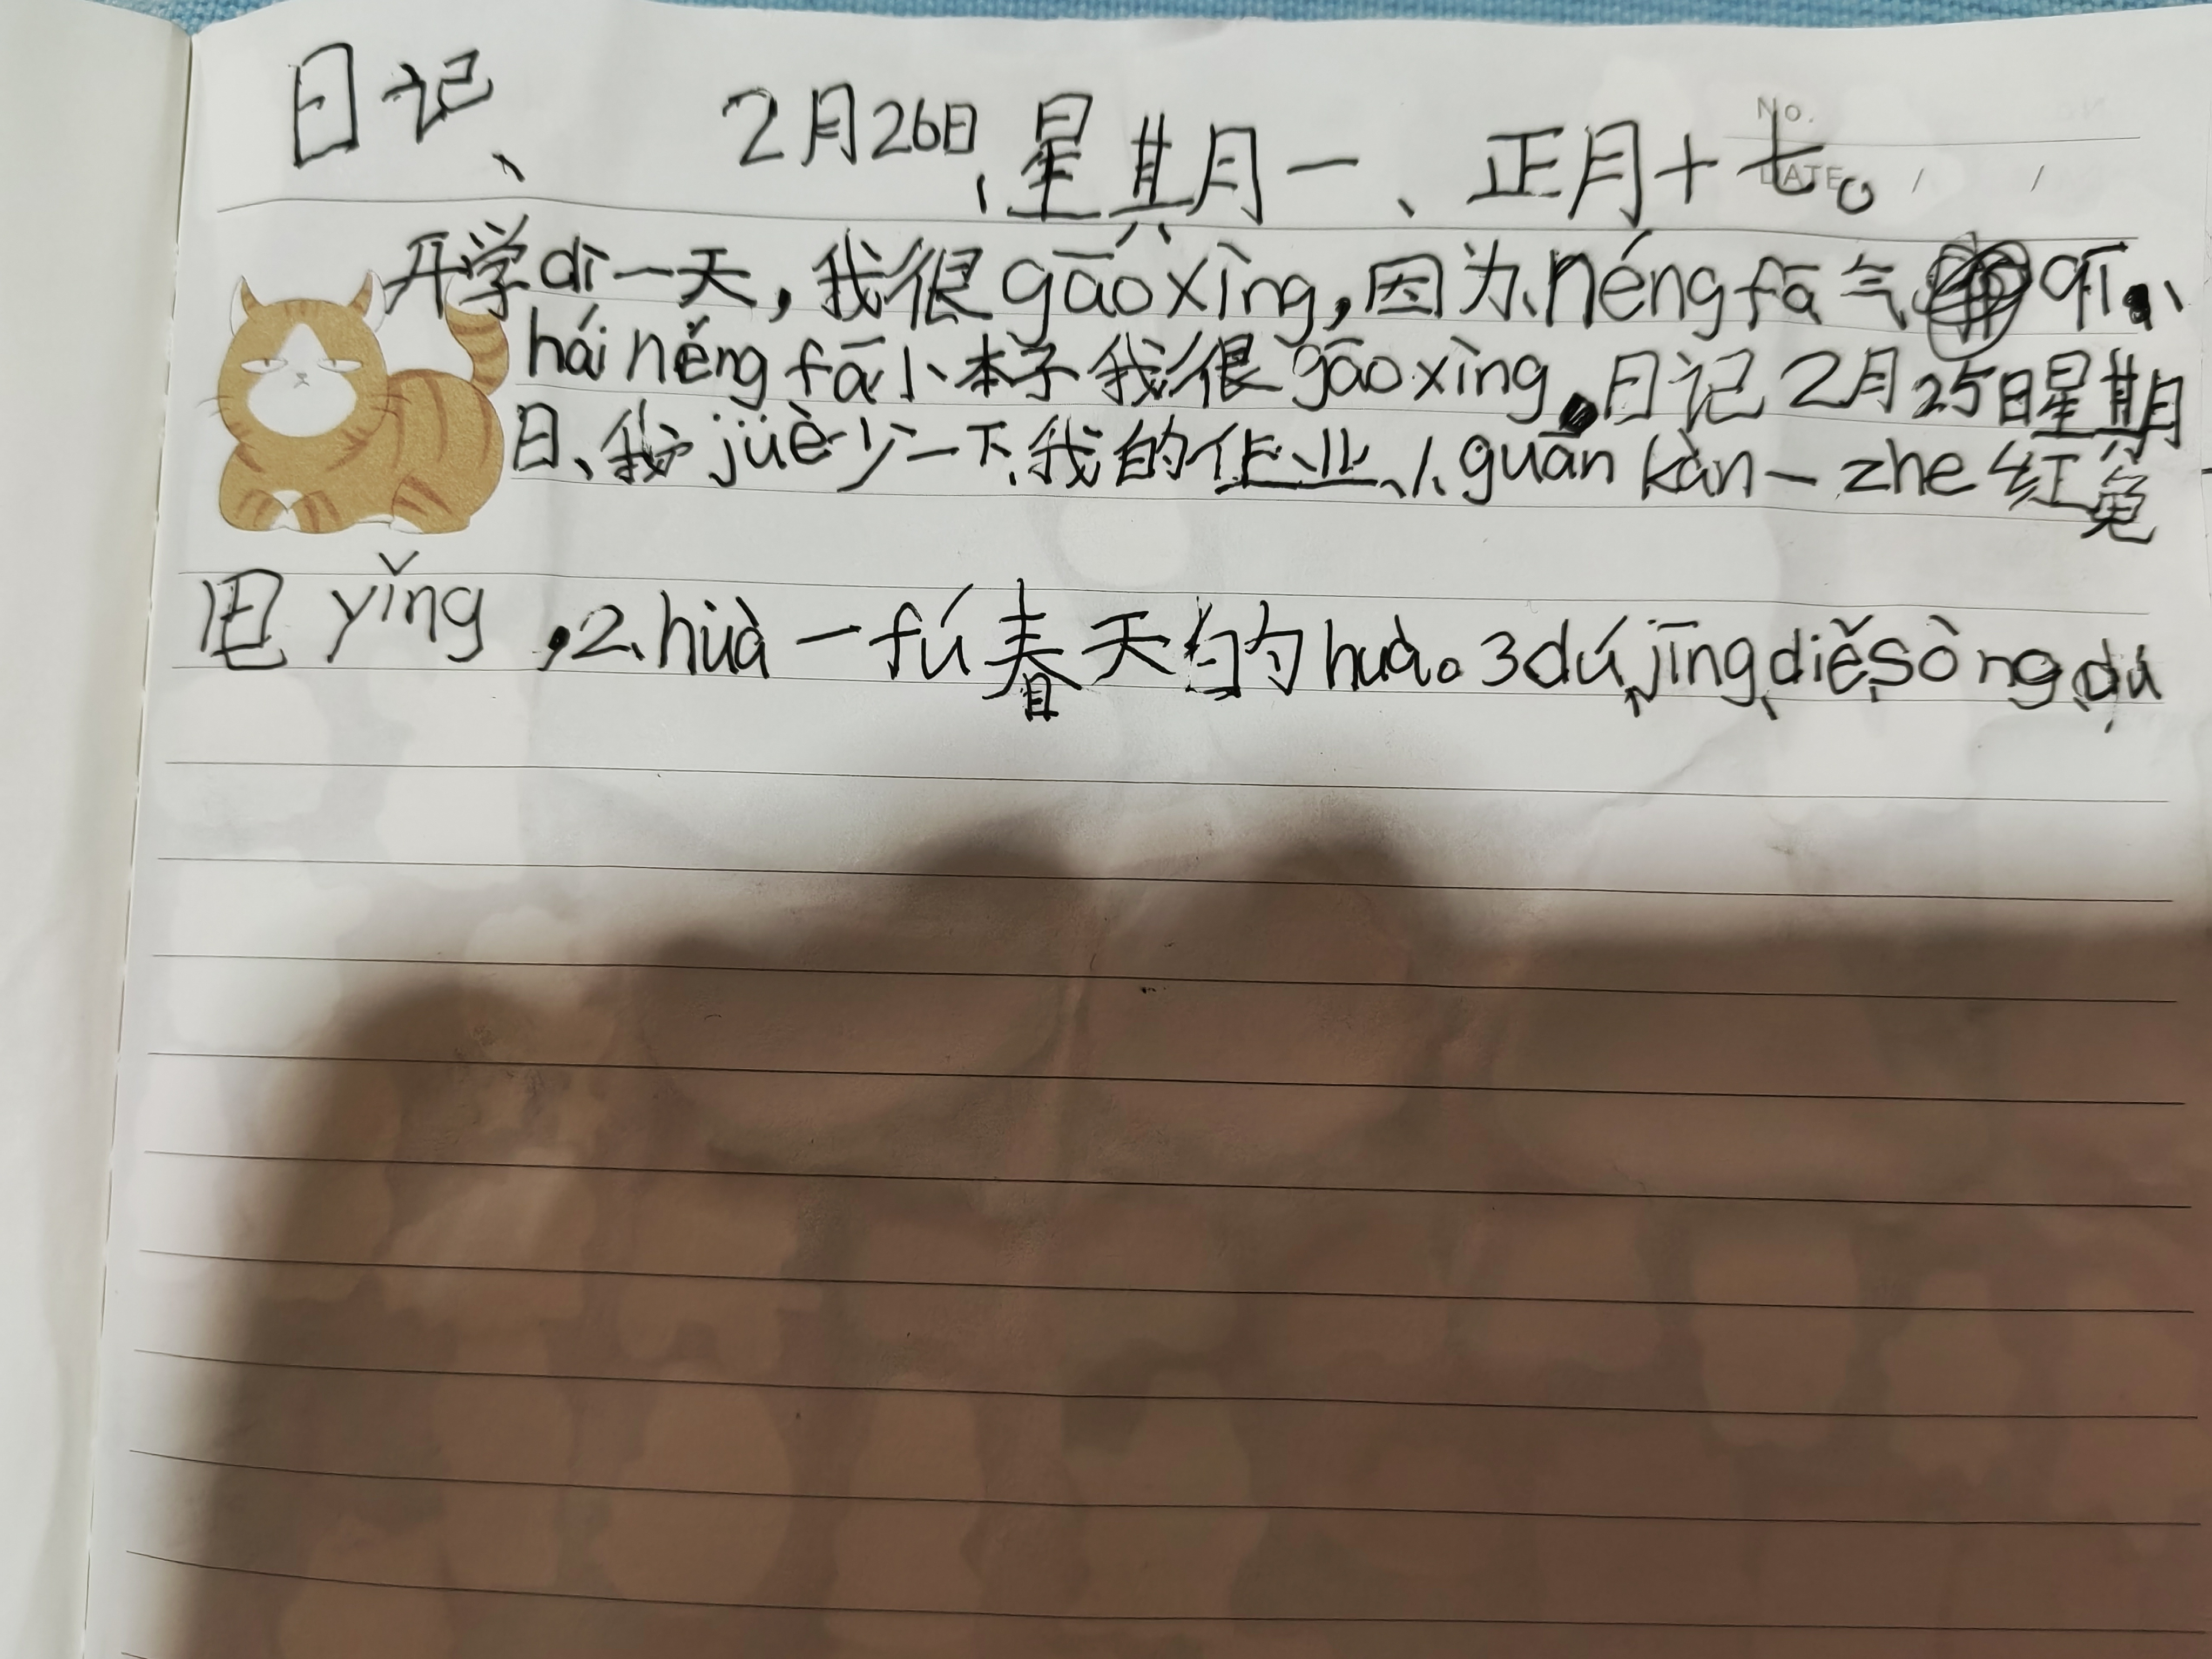 No.
DATE / /
日记、 2月26日、星期一、正月十七。
开学dì一天，我很gāoxìng，因为néngfā气qī、
háiněngfā小本子我很gāoxìng。日记2月25日星期
日、我jüè少一下、我的作业、1、guānkàn一zhe红兔
电yǐng，2、huà一fú春天的huà。3dú、jīng、diě、sòng、dú